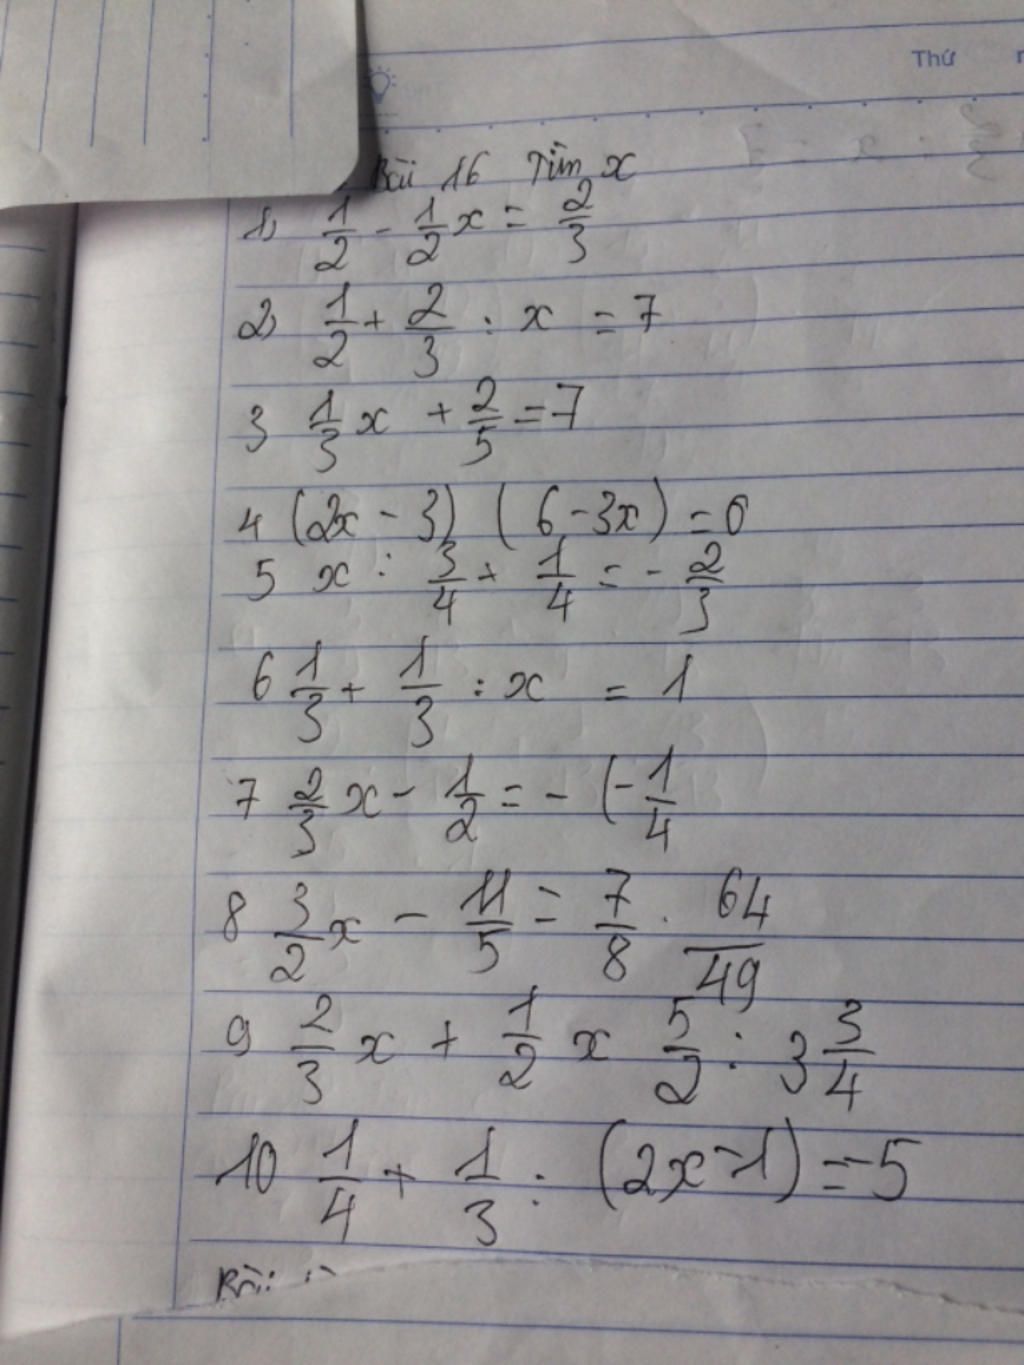 Thứ
Bài 16 Tìm x
1) 1/2 - 1/2 x = 2/3
2) 1/2 + 2/3 : x = 7
3 1/3 x + 2/5 = 7
4 (2x - 3) (6 - 3x) = 0
5 x : 3/4 + 1/4 = - 2/3
6 1/3 + 1/3 : x = 1
7 2/3 x - 1/2 = - (- 1/4
8 3/2 x - 11/5 = 7/8 . 64/49
9 2/3 x + 1/2 x 5/2 : 3 3/4
10 1/4 + 1/3 : (2x - 1) = -5